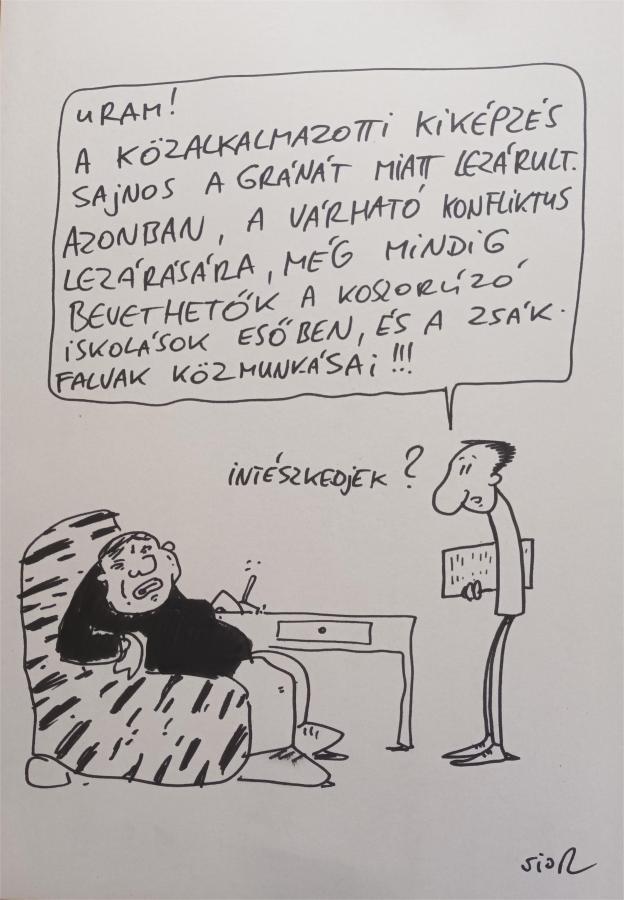 URAM!
A KÖZALKALMAZOTTI KIKÉPZÉS
SAJNOS A GRÁNÁT MIATT LEZÁRULT.
AZONBAN, A VÁRHATÓ KONFLIKTUS
LEZÁRÁSÁRA, MÉG MINDIG
BEVETHETŐK A KOSZORÚZÓ
ISKOLÁSOK ESŐBEN, ÉS A ZSÁK-
FALVAK KÖZMUNKÁSAI!!!
INTÉSZKEDJEK?
SIOR